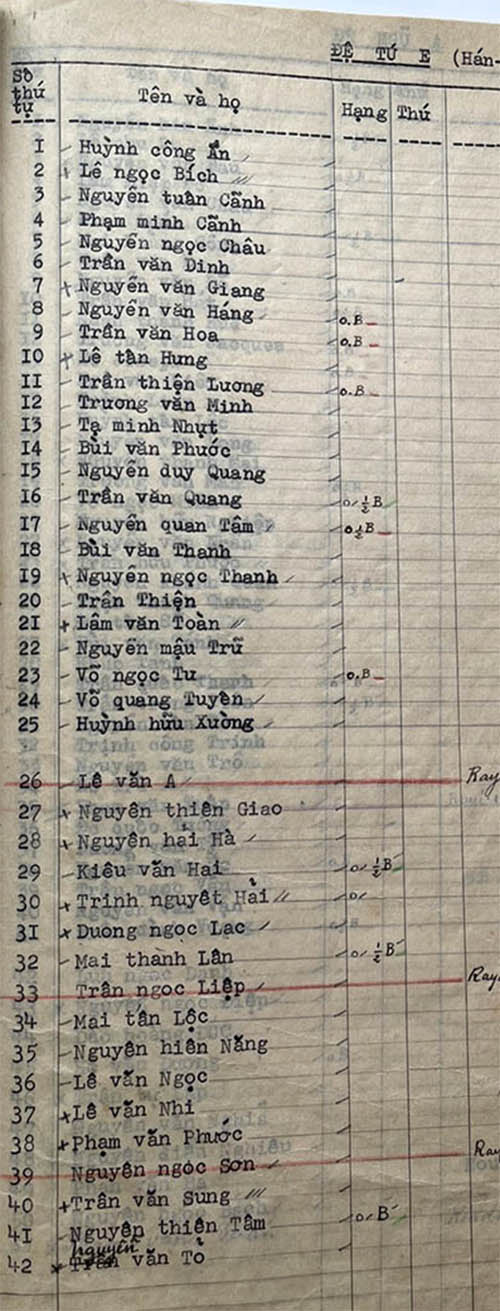 ĐỆ TỨ E (Hán-
Số thứ tự Tên và họ Hạng Thứ
1 Huỳnh công Ẩn
2 + Lê ngọc Bích
3 Nguyễn tuấn Cảnh
4 Phạm minh Cảnh
5 Nguyễn ngọc Châu
6 Trần văn Dinh
7 + Nguyễn văn Giang
8 Nguyễn văn Háng o.B
9 Trần văn Hoa o.B
10 + Lê tấn Hưng
11 Trần thiện Lương o.B
12 Trương văn Minh
13 Tạ minh Nhựt
14 Bùi văn Phước
15 Nguyễn duy Quang
16 Trần văn Quang o. ½ B
17 Nguyễn quan Tâm o ½ B
18 Bùi văn Thanh
19 + Nguyễn ngọc Thanh
20 Trần Thiện
21 + Lâm văn Toàn
22 Nguyễn mậu Trữ
23 Võ ngọc Tư o.B
24 Võ quang Tuyền
25 Huỳnh hữu Xường
26 Lê văn A Ray
27 + Nguyễn thiên Giao
28 + Nguyễn hải Hà
29 Kiều văn Hai o. ½ B
30 + Trinh nguyêt Hải o.
31 + Duong ngọc Lạc
32 Mai thành Lân o. ½ B
33 Trần ngọc Liệp Ray
34 Mai tấn Lộc
35 Nguyễn hiền Năng
36 Lê văn Ngọc
37 + Lê văn Nhi
38 + Phạm văn Phước
39 Nguyễn ngọc Sơn Ray
40 + Trần văn Sung
41 Nguyễn thiên Tâm o. B
42 + Trần nguyễn văn Tỏ